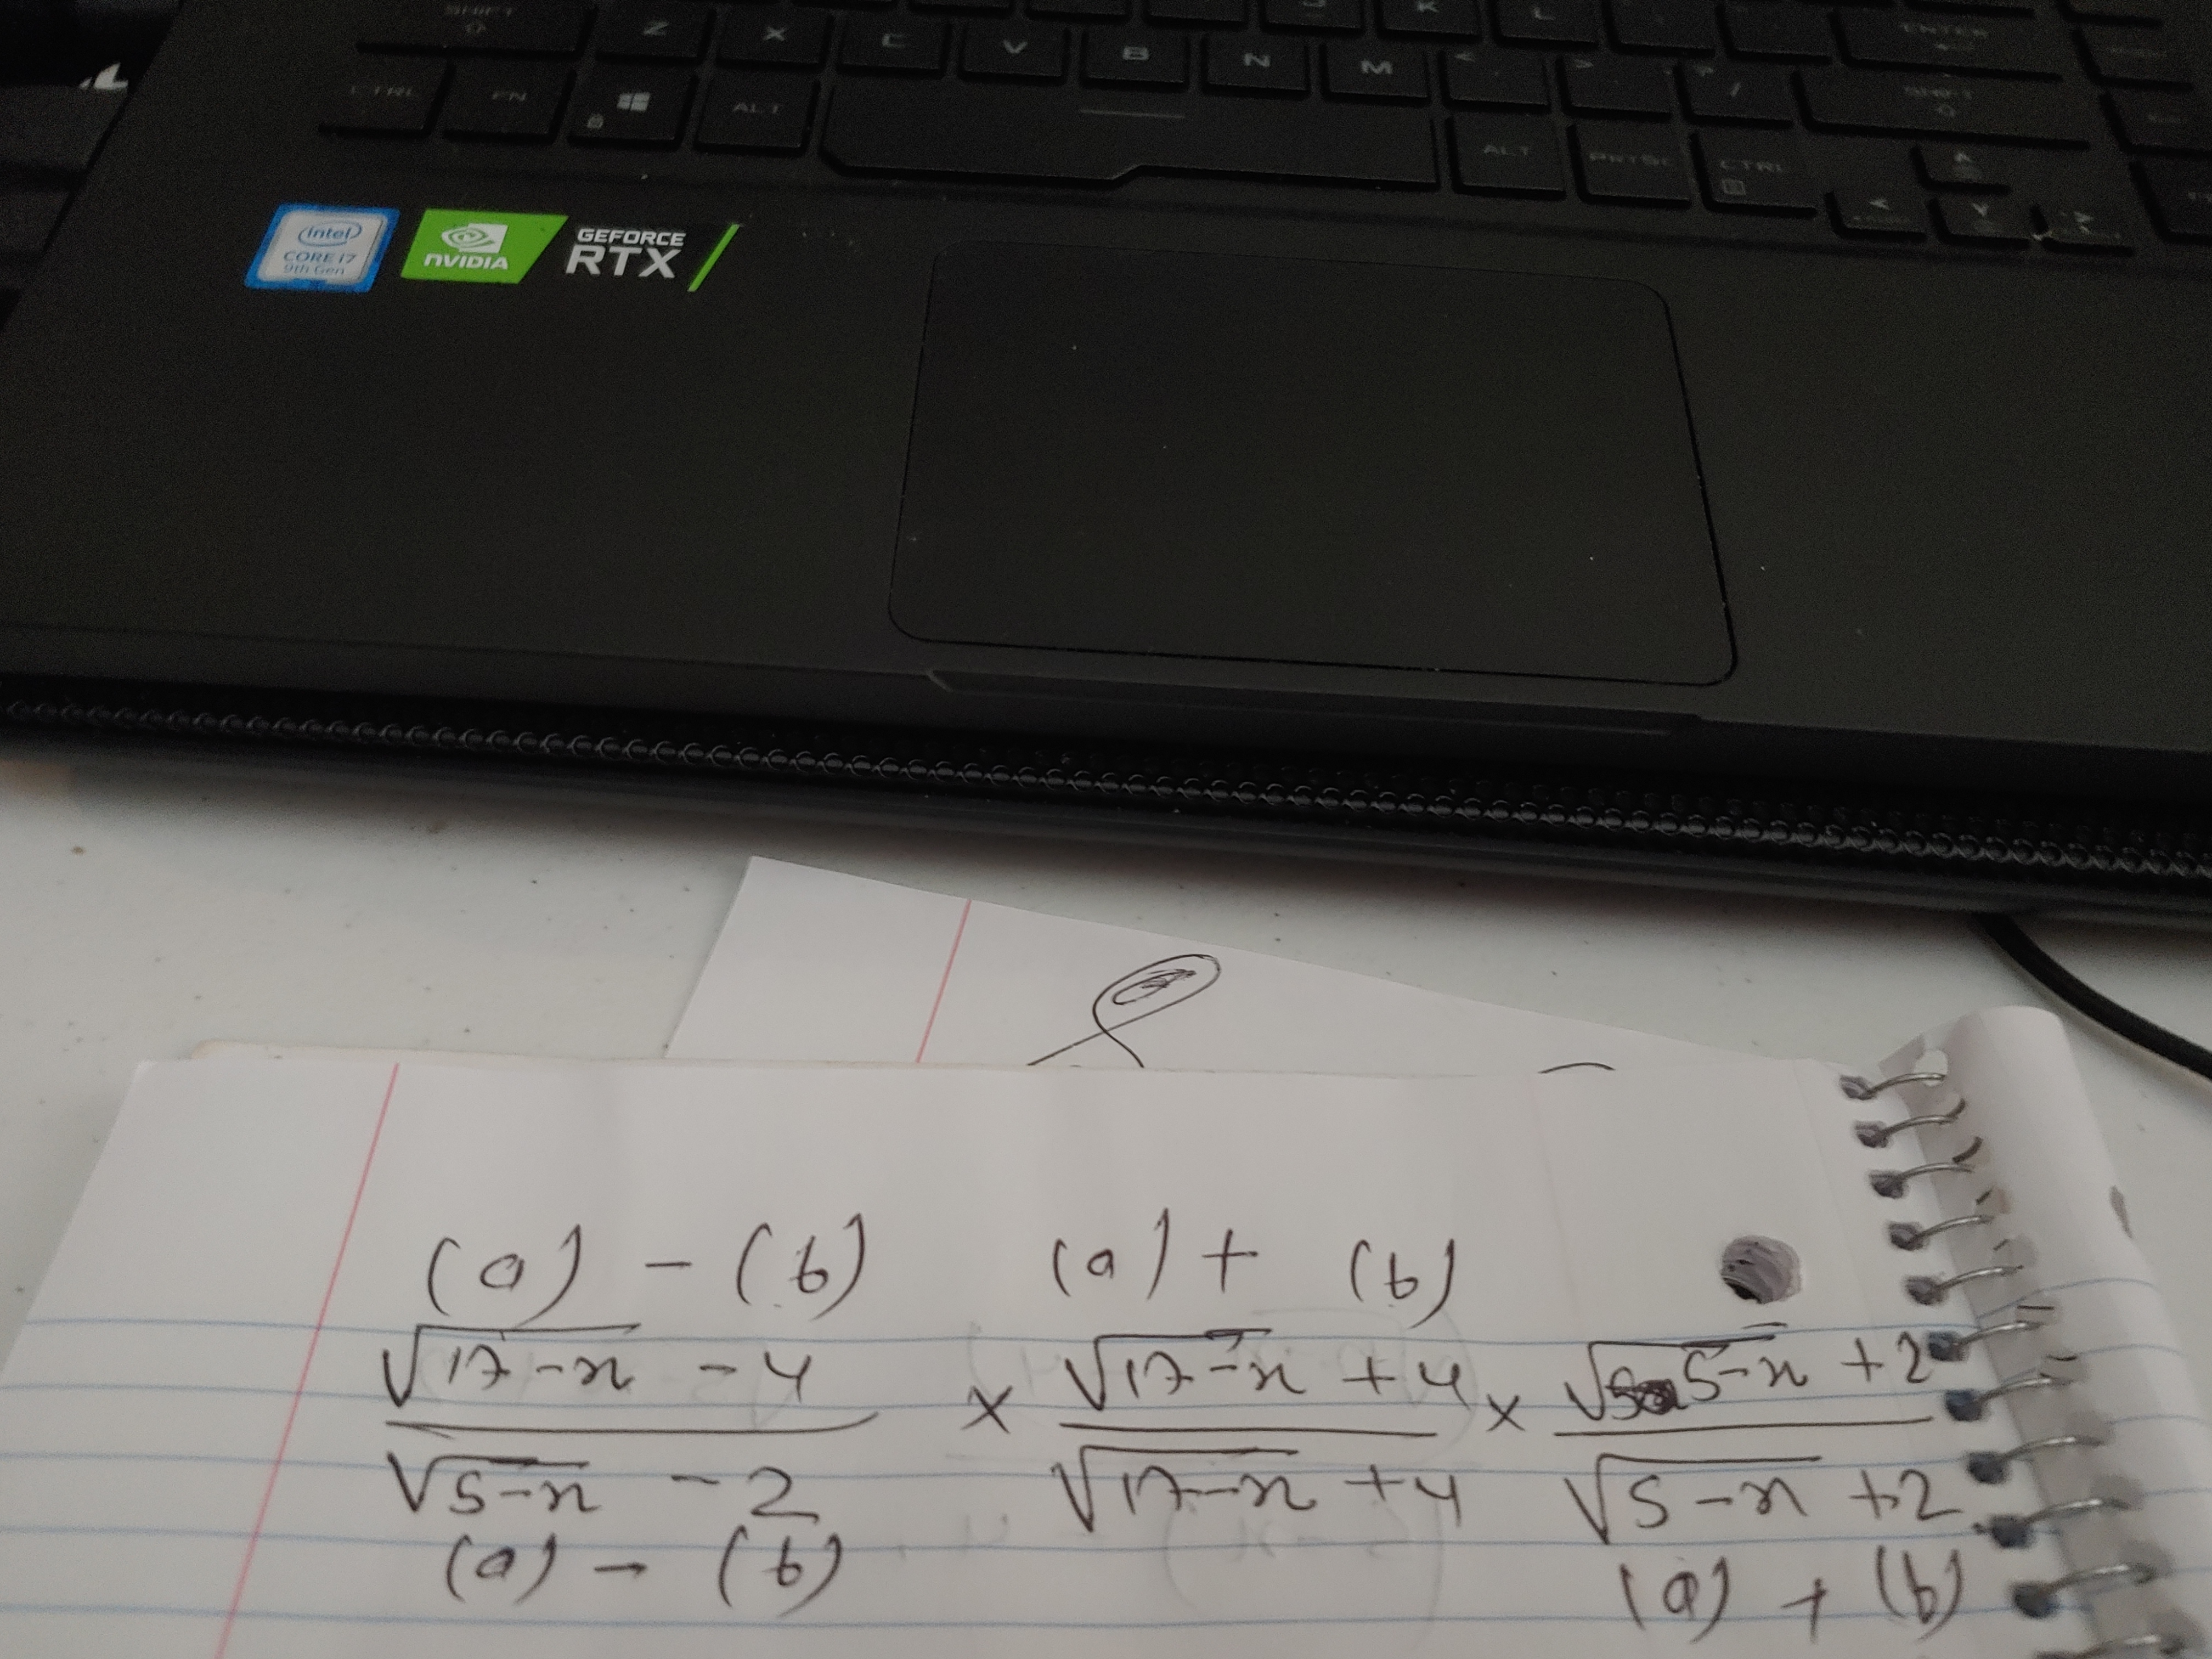 SHIFT Z X C V B N M < > ? / ENTER
CTRL FN ALT ALT PRTSC CTRL SHIFT
intel
CORE i7
9th Gen
NVIDIA
GEFORCE
RTX
(a) - (b) (a) + (b)
√17-x - 4 × √17-x + 4 × √5-x + 2
√5-x - 2 √17-x + 4 √5-x + 2
(a) - (b) (a) + (b)